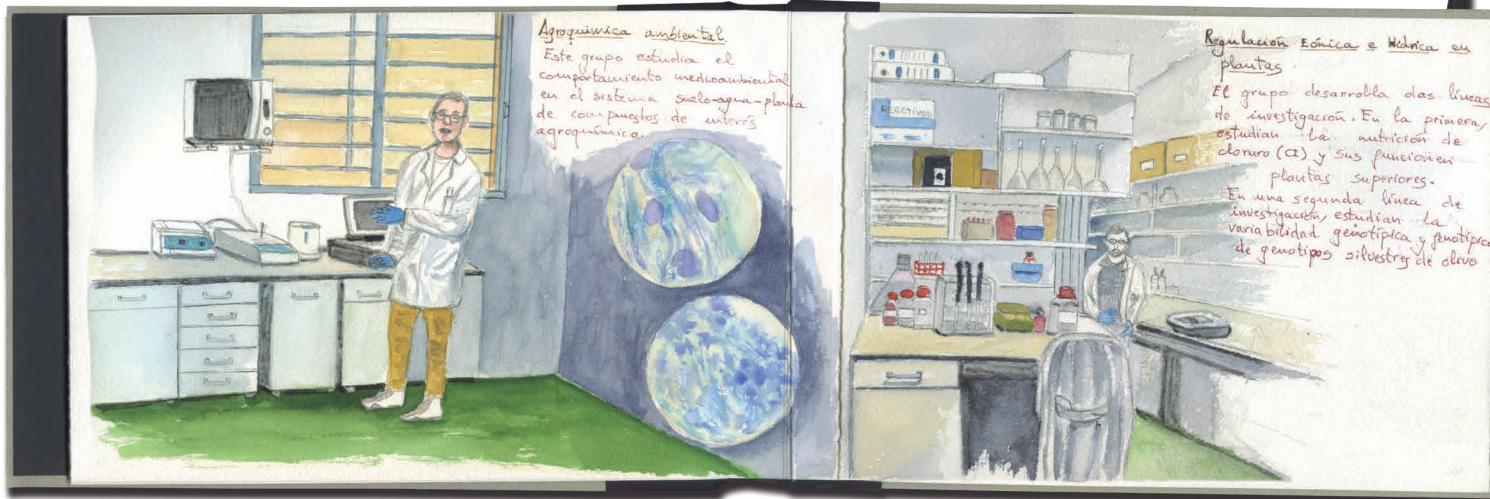 Agroquímica ambiental.
Este grupo estudia el
comportamiento medioambiental
en el sistema suelo-agua-planta
de compuestos de interés
agroquímico.
REACTIVOS
Regulación Iónica e Hídrica en
plantas
El grupo desarrolla dos líneas
de investigación. En la primera,
estudian la nutrición de
cloruro (Cl) y sus funcionen
plantas superiores.
En una segunda línea de
investigación, estudian la
variabilidad genotípica y fenotípica
de genotipos silvestres de olivo